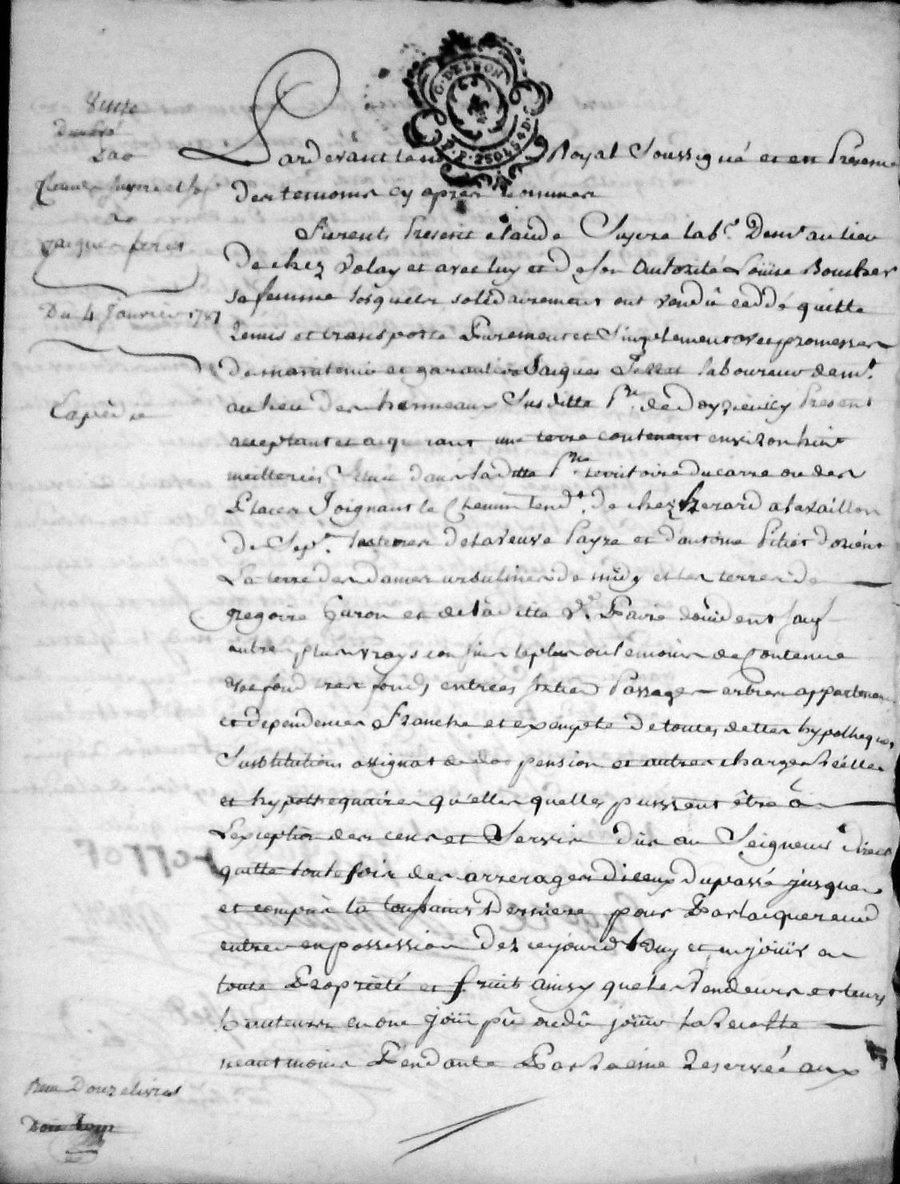 Vente
par
Claude Suyvre et sa fe
a
jacques feret
Du 4 Janvier 1781
Expédié
G. DE LYON
Pardevant le no Royal Soussigné et en Presence
des temoins cy apres nommes
Furents Present claude Suyvre lab.r Dem.t au lieu
de chez Volay et avec luy et de son autorité Loüise Boucher
sa femme lesquels solidairement ont vendû ceddé quitté
Remis et transporté Purement et Simplement avec promesses
de maintenir et garantir a Jacques laboureur dem.t
au lieu des hormeaux Susditte P.sse de Present
acceptant et aquerant une terre contenant environ huit
meitterées Située dans laditte P.sse territoire du carre ou des
Places Joignant le Chemin tend.t de chez Gerard a
de Sep.n les terres de la veuve Payre et d'antoine Pitiot d'orient
La terre des dames ursulines de midy et les terres de
gregoire Guron et de laditte V.e Paire d'occident sauf
autres plus vrays confins le plus ou le moins de Contenue
ses fond tres fonds, entrées sorties Passages arbres appartenan
et dependences Franche et exempte de toutes dettes hypotheques
Substitutions assignat de dot pension et autres charges Réelles
et hypothequaires qu'elles quelles pussent être à
L'exception des cens et Servis dûs au Seigneur Direct
quitte toutefois des arrerages d'iceux du passé jusques
et compris la toussaint Derniere pour Par l'acquereur
entrer en possession dez ce jourd'huy et en joüir en
toute Propriété et fruits ainsy que les Vendeurs et leurs
hauteurs en ont joüi pû ou dû joüir la Recolte
neantmoins Pendante Par Racine Reservée aux
Reçu Douze livres